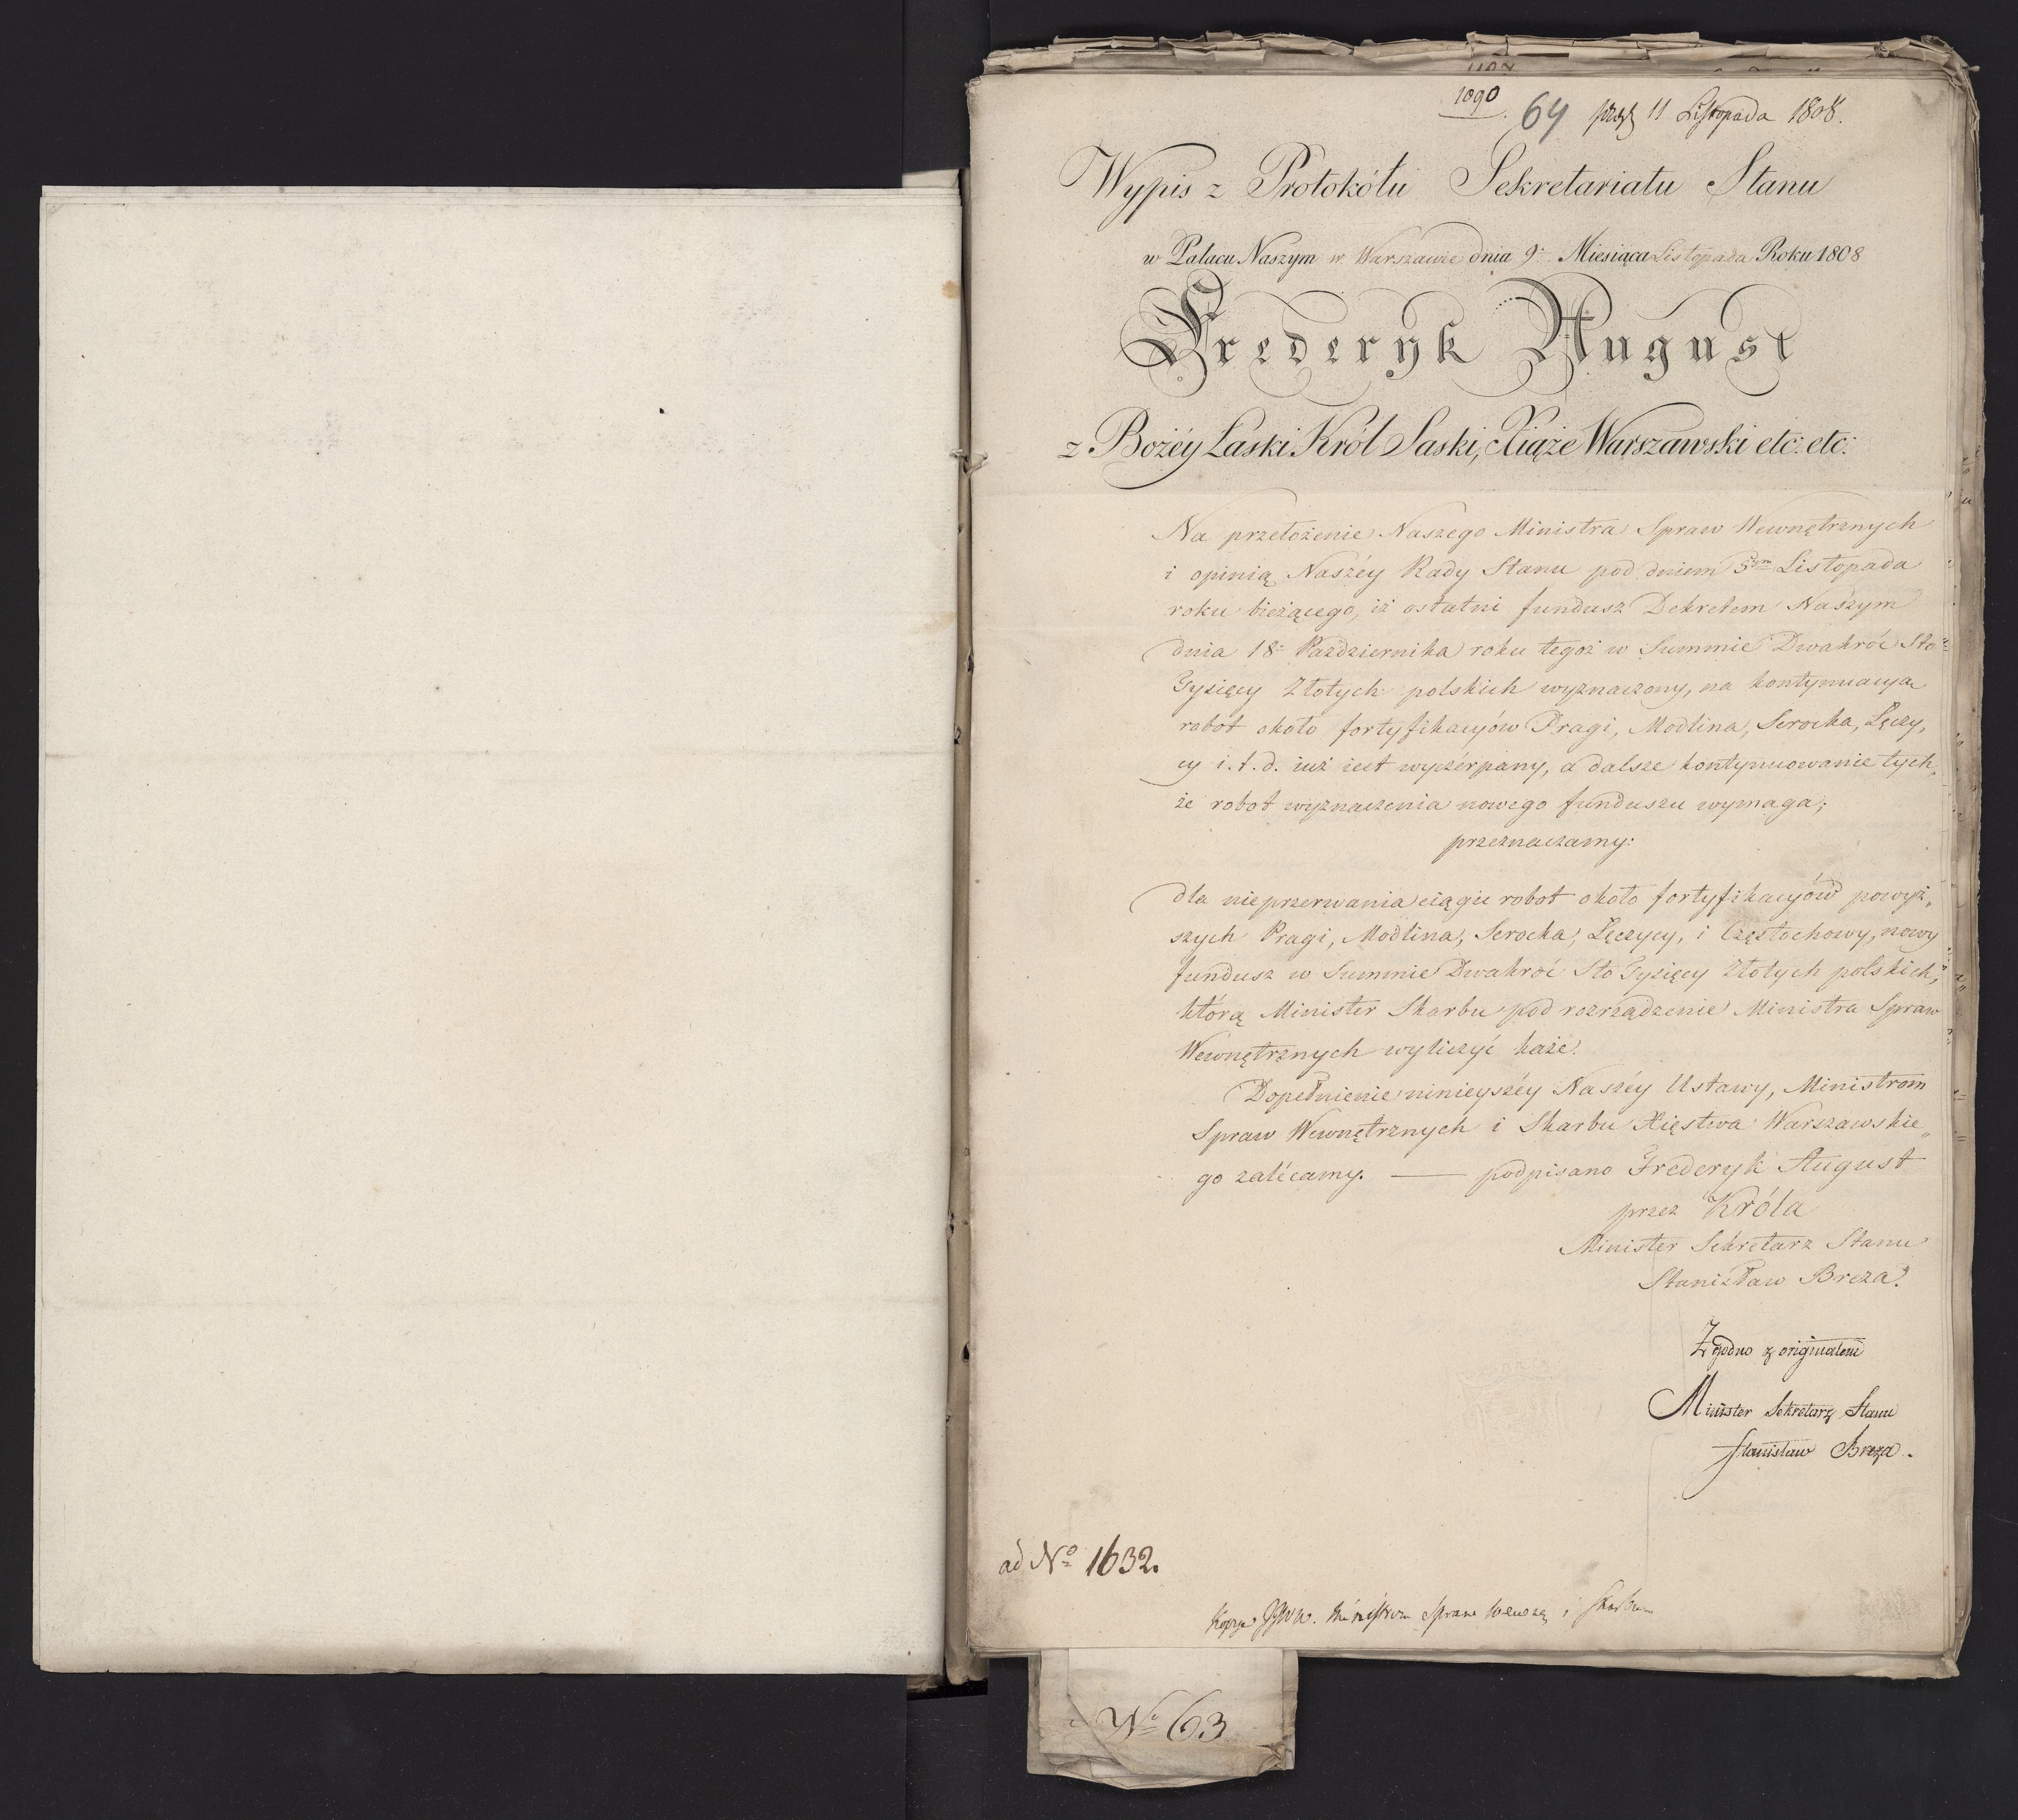 1090
64 11 Listopada 1808.
Wypis z Protokółu Sekretariatu Stanu
w Pałacu Naszym w Warszawie dnia 9. Miesiąca Listopada Roku 1808
Frederyk August
z Bożéy Łaski Król Saski, Xiąże Warszawski etc: etc:
Na przełożenie Naszego Ministra Spraw Wewnętrznych
i opinią Naszéy Rady Stanu pod dniem 5tym Listopada
roku bieżącego, iż ostatni fundusz Dekretem Naszym
dnia 18. Października roku tegoż w Summie Dwakroć Sto
Tysięcy Złotych polskich wyznaczony, na kontynuacyą
robot około fortyfikacyów Pragi, Modlina, Serocka, Łęczy,
cy i.t.d. iuż iest wyczérpany, a dalsze kontynuowanie tych,
że robot wyznaczenia nowego funduszu wymaga;
przeznaczamy:
dla nieprzerwania ciągu robot około fortyfikacyów powyż,
szych Pragi, Modlina, Serocka, Łęczycy, i Częstochowy, nowy
fundusz w Summie Dwakroć Sto Tysięcy Złotych polskich,
którą Minister Skarbu pod rozrządzenie Ministra Spraw
Wewnętrznych wyliczyć każe.
Dopełnienie ninieyszéy Naszéy Ustawy, Ministrom
Spraw Wewnętrznych i Skarbu Xięstwa Warszawskie„
go zalécamy. — podpisano Frederyk August
przez Króla
Minister Sekretarz Stanu
Stanisław Breza.
Zgodno z originałem
Minister Sekretarz Stanu
Stanisław Breza.
ad No 1632.
Kopye JJWW. Ministrom Spraw Wewnę i Skarbu
No 63